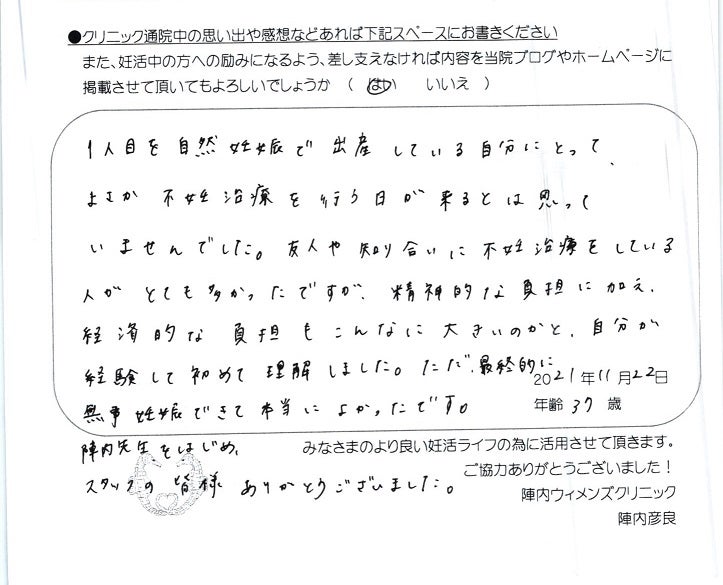 ●クリニック通院中の思い出や感想などあれば下記スペースにお書きください
また、妊活中の方への励みになるよう、差し支えなければ内容を当院ブログやホームページに
掲載させて頂いてもよろしいでしょうか （ はい いいえ ）
1人目を自然妊娠で出産している自分にとって、
まさか不妊治療を行う日が来るとは思って
いませんでした。友人や知り合いに不妊治療をしている
人がとても多かったですが、精神的な負担に加え、
経済的な負担もこんなに大きいのかと、自分が
経験して初めて理解しました。ただ、最終的に
2021年11月22日
無事妊娠できて本当によかったです。
年齢 37 歳
陣内先生をはじめ、
スタッフの皆様、ありがとうございました。
みなさまのより良い妊活ライフの為に活用させて頂きます。
ご協力ありがとうございました！
陣内ウィメンズクリニック
陣内彦良